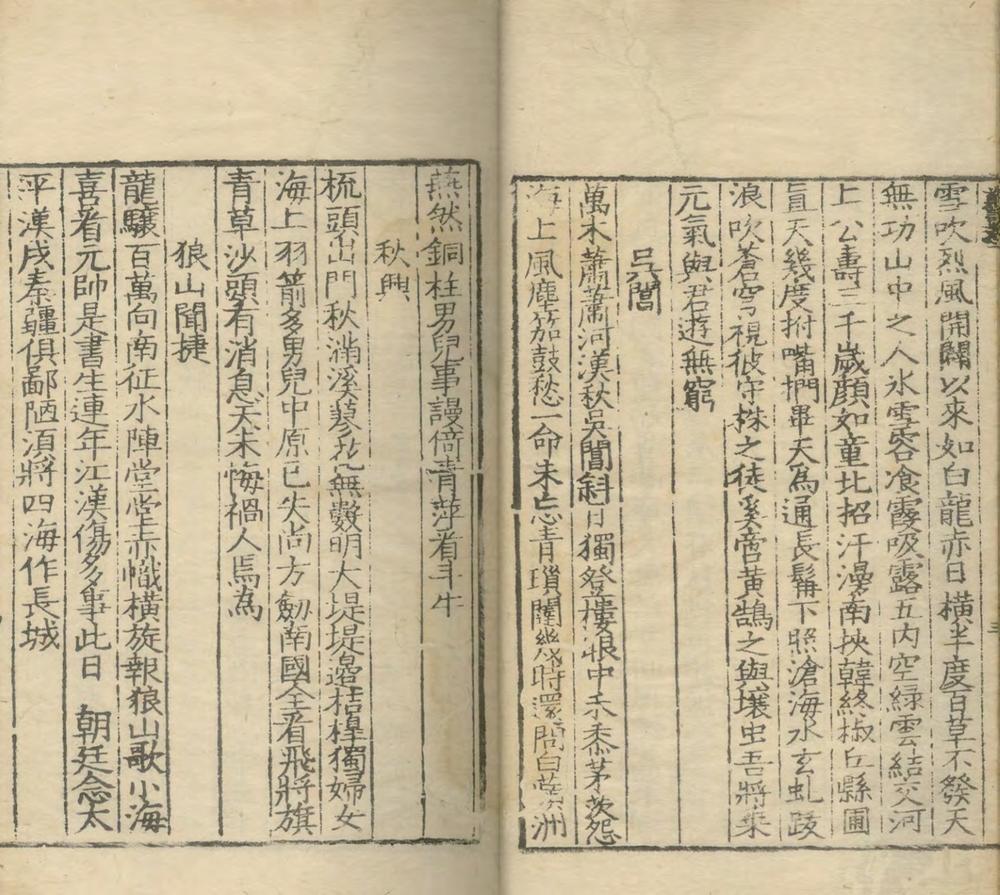 雪吹烈風開闢以來如白龍赤日橫坐度百草不發天
無功山中之人氷雪容飡霞吸露五內空緑雲結交河
上公壽三千歲顔如童北招汗漫南挾韓終椒丘縣圃
冝天幾度拊嘴捫畢天為通長髯下照滄海水玄虬跂
浪吹蒼穹視彼守株之徒奚啻黃鵠之與壤虫吾將乗
元氣與君遊無窮
吳閶
萬木蕭蕭河漢秋吳閶斜日獨登樓恨中禾黍茅茨怨
海上風塵笳鼓愁一命未忘青瑣闥幾時還問白蘋洲
燕然銅柱男兒事謾倚青萍看斗牛
秋興
梳頭出門秋滿溪蓼花無數明大堤堤邉桔橰獨婦女
海上羽箭多男兒中原已失尚方劒南國全看飛將旗
青草沙頭有消息天未悔禍人焉為
狼山聞捷
龍驤百萬向南征水陣堂堂赤幟橫旋報狼山歌小海
喜看元帥是書生連年江漢傷多事此日 朝廷念太
平漢戍秦疆俱鄙陋須將四海作長城